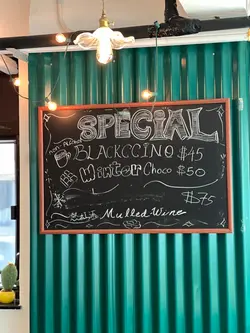 SPECIAL
non-Alcohol
BLACKCCINO $45
Winter Choco $50
$75
Mulled Wine